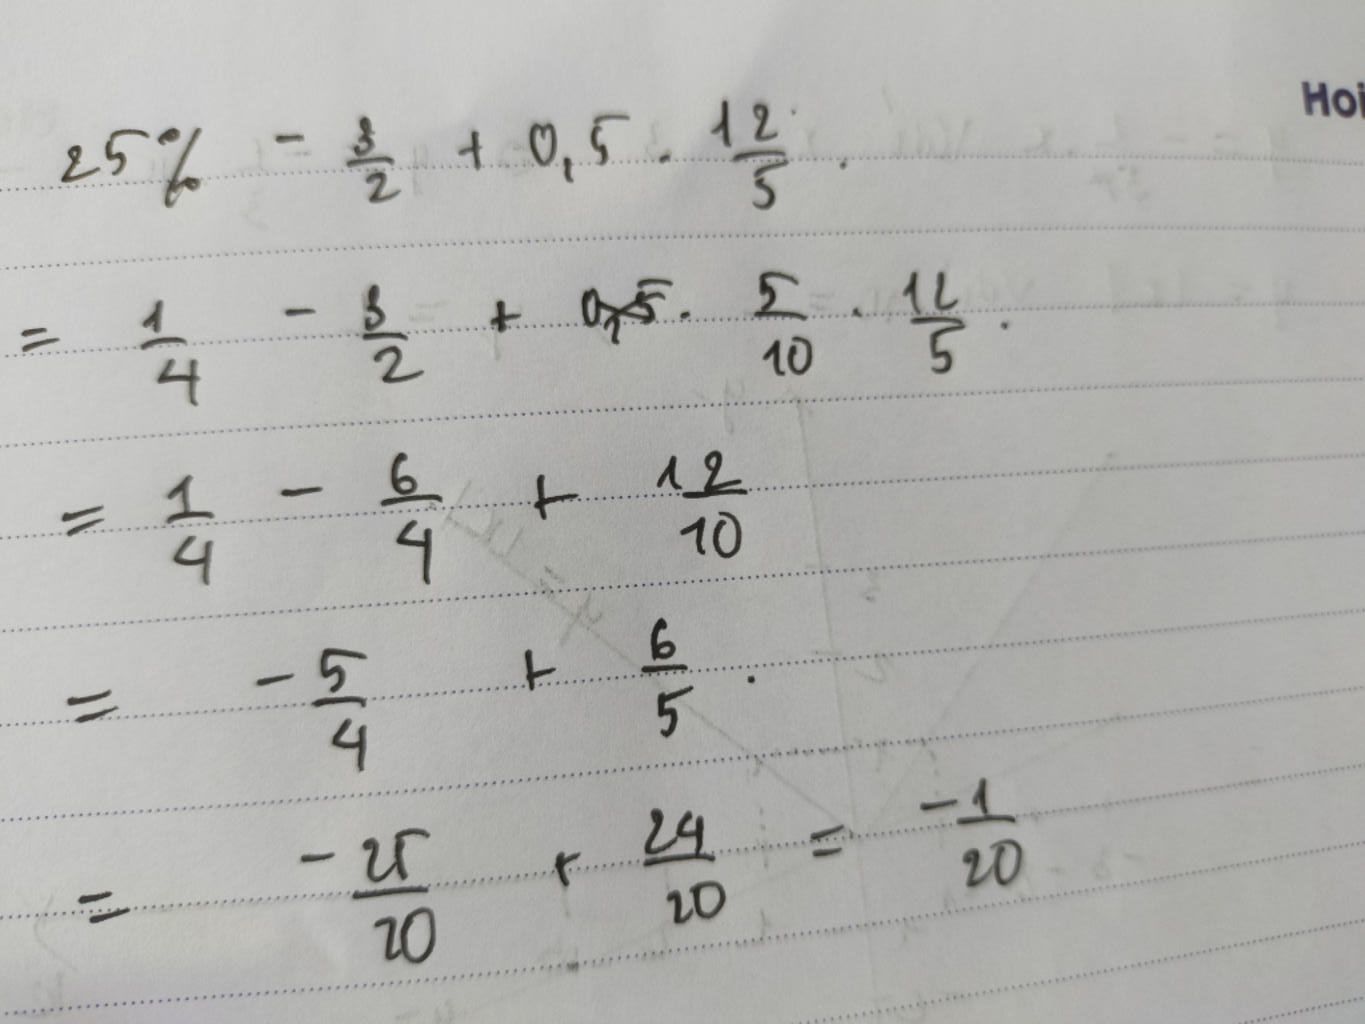 Hoi
25% - 3/2 + 0,5 . 12/5 .
= 1/4 - 3/2 + 0,5 . 5/10 . 12/5 .
= 1/4 - 6/4 + 12/10
= -5/4 + 6/5 .
= -25/20 + 24/20 = -1/20